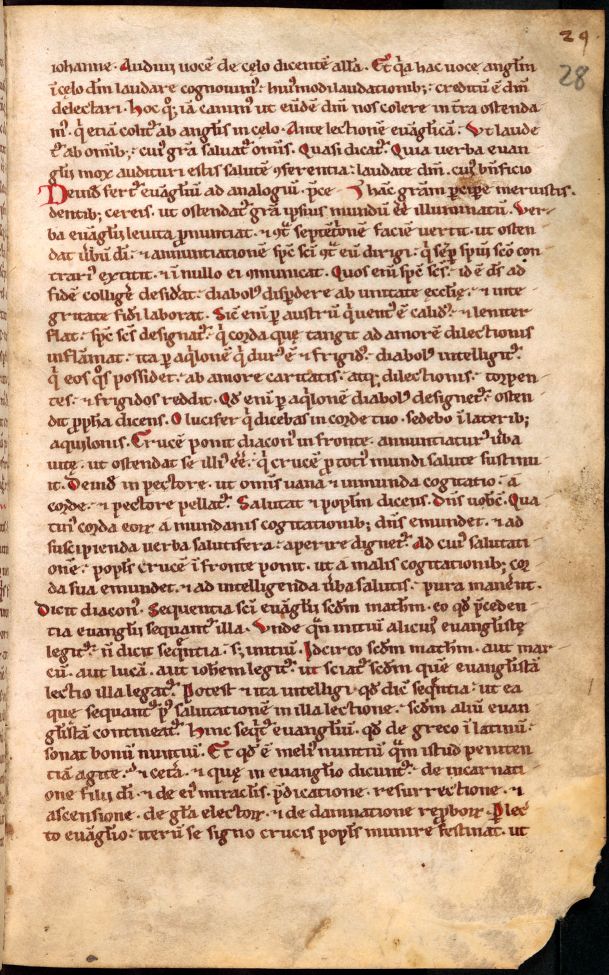 29
28
iohanne. Audiui uocē de cęlo dicentē alła. Et q̇a hac uoce angłm
ī cęlo dn̄m laudare cognouim᷒. hui᷒modi laudationib; creditū ē dn̄m
delectari. hoc q; iā canim᷒ ut eūdē dn̄m nos colere in t̄ra ostenda
m᷒. q̇ etiā colit᷑ ab angłis in cęlo. Ante lectionē euāglicā. Vt laude
t᷑ ab om̄ib; cui᷒ gr̄a saluat᷑ om̄is. Quasi dicat᷑. Quia uerba euan
glij mox audituri estis salutē ɔferentia: laudate dn̄m. cui᷒ bn̄ficio
Deinđ fert᷑ euāgliū ad analogiū. p̄ce hanc gr̄am ꝑcipe meruistis.
dentib; cereis. ut ostendat᷑ gr̄a ipsius mundū ēe illuminatū. Ver
ba euāglij leuita ꝓnuntiat. ⁊ ɔt᷑ septētrionē faciē uertit. ut osten
dat ūbū dī. ⁊ annuntiationē sp̄c sc̄i ɔt᷑ eū dirigi. q̇ sēꝑ sp̄ui sc̄o con
trari᷒ extitit. ⁊ ī nullo ei ɔmunicat. Quos enī sp̄c sc̄s. id ē ds̄ ad
fidē colligē desid̄at. diabol᷒ disp̄dere ab unitate ęcclię. ⁊ inte
gritate fidei laborat. Sic enī ꝑ austrū q̇ uent᷒ ē calid᷒. ⁊ leniter
flat. sp̄c sc̄s designat᷑. q̇ corda quę tangit ad amorē dilectionis
inflāmat. ita ꝑ aq̇lonē q̇ dur᷒ ē ⁊ frigid᷒. diabol᷒ intelligit᷑.
q̇ eos q̊s possidet. ab amore caritatis. atq; dilectionis. torpen
tes. ⁊ frigidos reddit. Qđ enī ꝑ aq̇lonē diabol᷒ designet᷑. osten
dit ꝓpha dicens. O lucifer q̇ dicebas in corde tuo. sedebo ī laterib;
aquilonis. Crucē ponit diacon᷒ in fronte. annuntiatur᷒ ūba
uitę. ut ostendat se illi᷒ ēe. q̇ crucē ꝑ toti᷒ mundi salute sustinu
it. Deinđ in pectore. ut omīs uana ⁊ inmunda cogitatio. a
corde. ⁊ pectore pellat᷑. Salutat ⁊ popłm dicens. Dn̄s uobc̄. Qua
tin᷒ corda eoꝝ a mundanis cogitationib; dn̄s emundet. ⁊ ad
suscipienda uerba salutifera. aperire dignet᷑. Ad cui᷒ salutati
onē. popłs crucē ī fronte ponit. ut a malis cogitationib; cor
da sua emundet. ⁊ ad intelligenda ūba salutis. pura maneānt.
Dicit diacon᷒. Sequentia sc̄i euāglij scđm math̄m. eo qđ p̄ceden
tia euanglij sequant᷑ illa. Vnde qn̄ initiū alicui᷒ euanglistę
legit᷑. n̄ dicit seqn̄tia. s; initiū. Idcirco scđm math̄m. aut mar
cū. aut lucā. aut ioh̄em legit᷑. ut sciat᷑ scđm quē euanglistā
lectio illa legat᷑. Potest ⁊ ita intelligi. qđ dic̄ seqn̄tia: ut ea
que sequant᷑ p᷒ salutationē in illa lectione. scđm aliū euan
glistā contineat᷑. Hinc seq᷑t᷑ euangliū. qđ de greco ī latinū.
sonat bonū nuntiū. Et qđ ē meli᷒ nuntiū q̄m istud peniten
tiā agite. ⁊ cetā. ⁊ quę in euanglio dicunt᷑. de incarnati
one filij dī. ⁊ de ei᷒ miraclis. p̄dicatione. resurrectione. ⁊
ascensione. de gła electoꝝ. ⁊ de damnatione reꝓboꝝ. Plec
to euāglio. iterū se signo crucis popłs munire festinat. ut